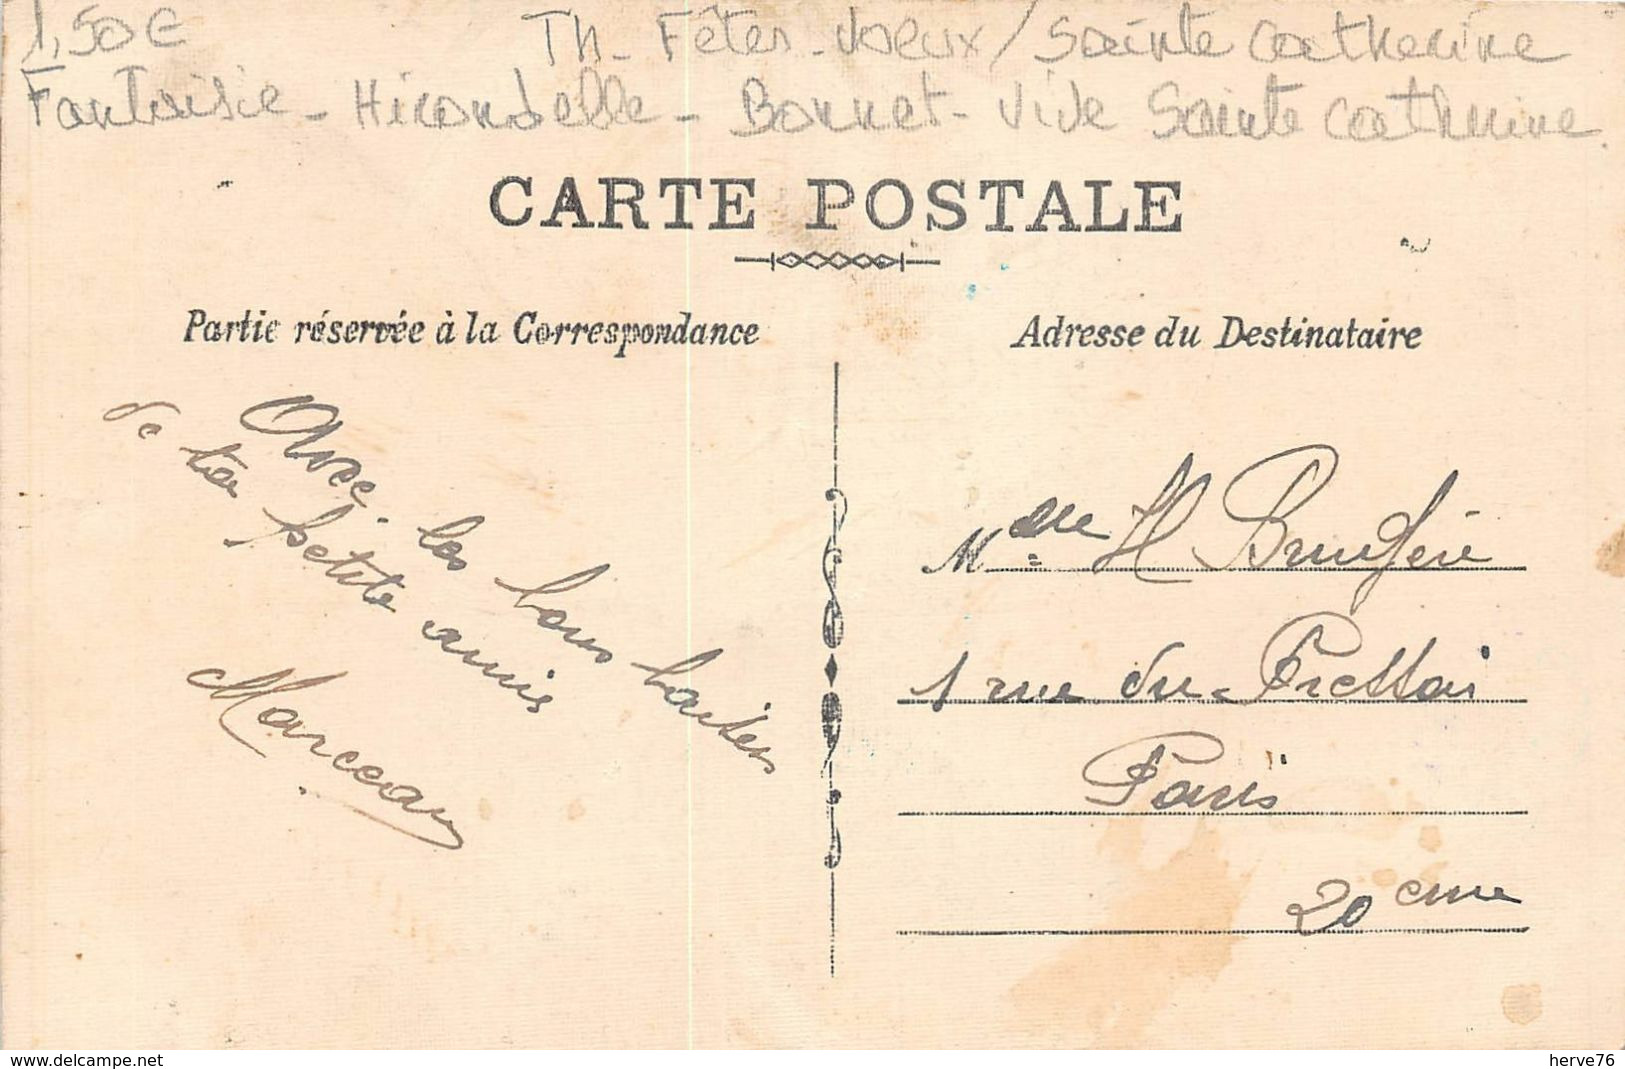 1,50€
Th - Fêtes - Voeux / Sainte Catherine
Fantaisie - Hirondelle - Bonnet - Vive Sainte Catherine.
CARTE POSTALE
Partie réservée à la Correspondance
Adresse du Destinataire
Avec les bons baisers
de ta petite amie
Marceau
Melle H Brugère
1 rue du Pressoir
Paris
20 eme
www.delcampe.net
herve76